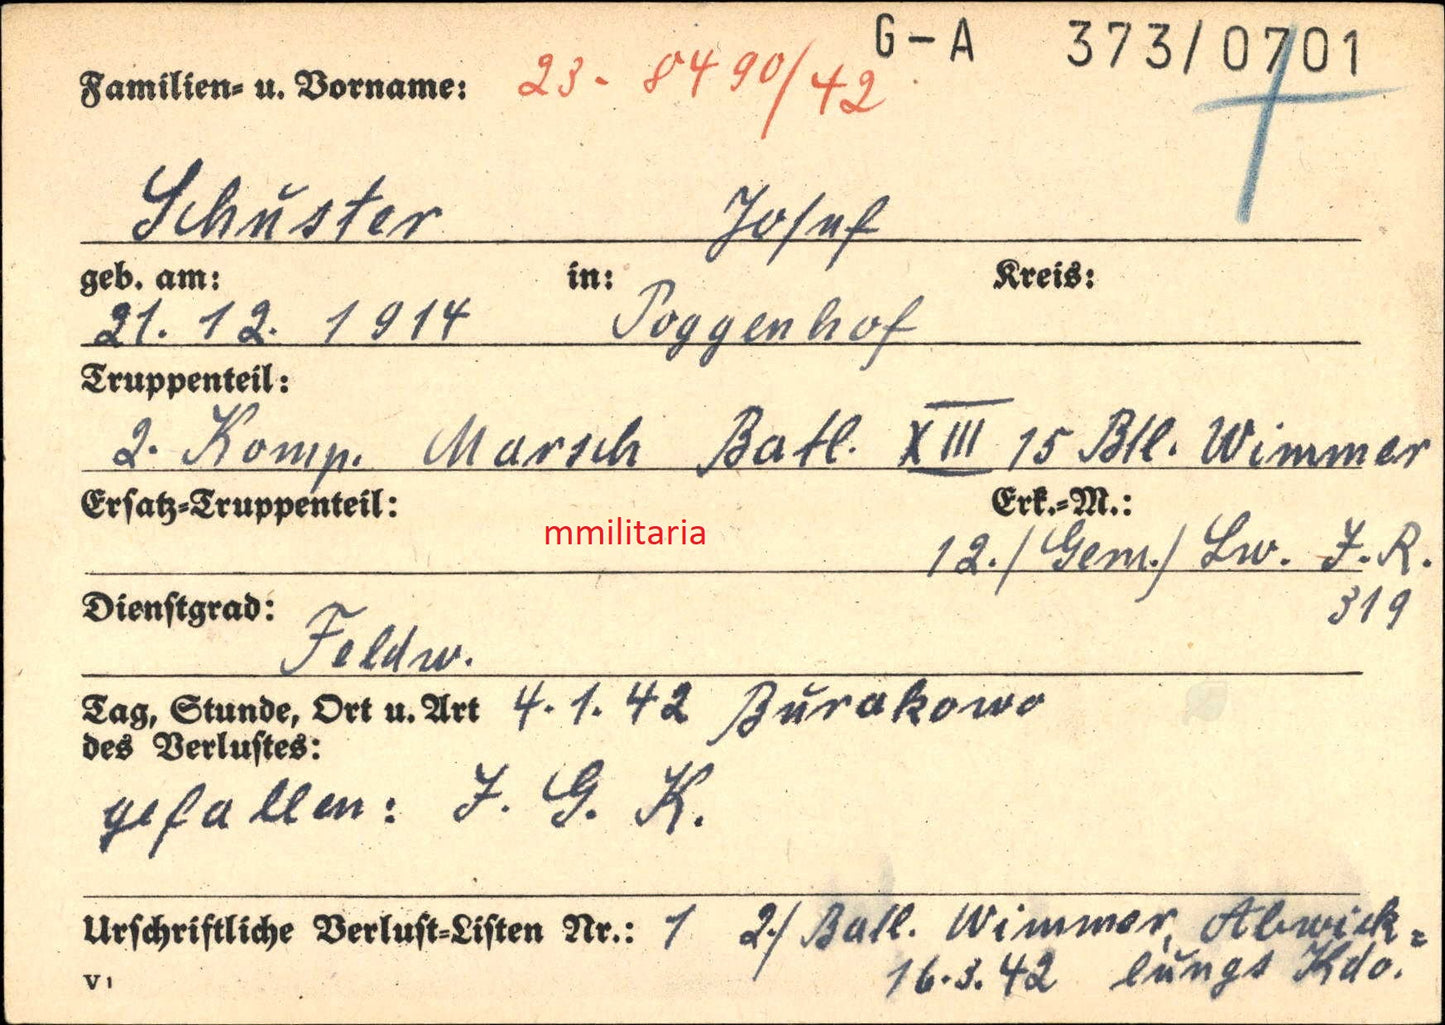 G-A 373/0701
Familien- u. Vorname: 23-8490/42
Schuster Josef
geb. am: in: Kreis:
21. 12. 1914 Poggenhof
Truppenteil:
2. Komp. Marsch Batl. XIII 15 Btl. Wimmer
Ersatz-Truppenteil: Erk.-M.:
mmilitaria
12./Gem./ Lw. J.R.
319
Dienstgrad:
Feldw.
Tag, Stunde, Ort u. Art 4.1.42 Burakowo
des Verlustes:
gefallen: J. G. K.
Urschriftliche Verlust-Listen Nr.: 1 2./ Batl. Wimmer, Abwick=
16.3.42 lungs Kdo.
V1